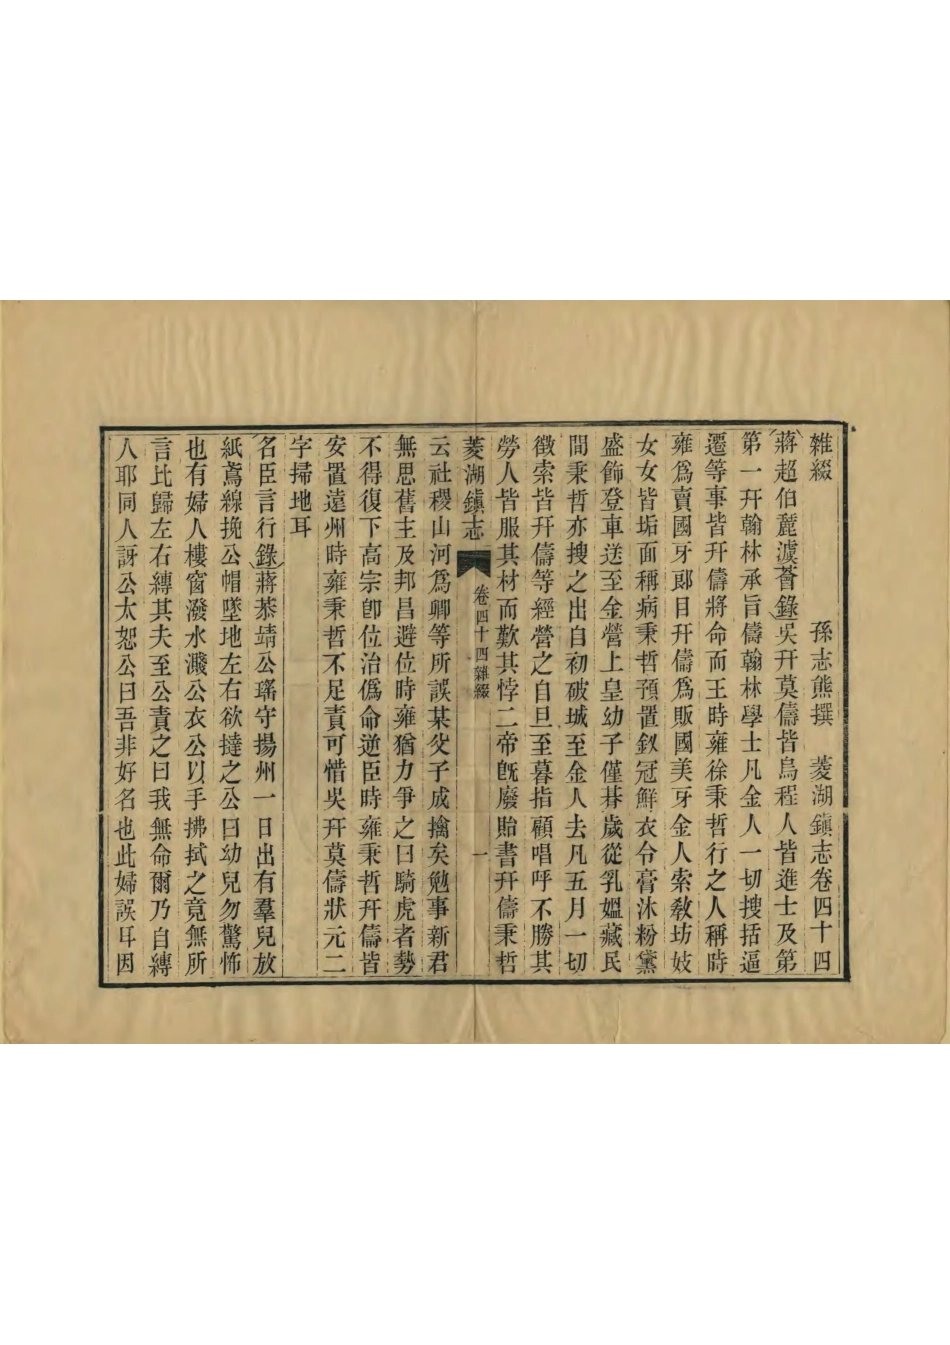 雜綴　孫志熊撰　菱湖鎮志卷四十四
蔣超伯麓澞薈錄吳幵莫儔皆烏程人皆進士及第
第一幵翰林承旨儔翰林學士凡金人一切搜括逼
遷等事皆幵儔將命而王時雍徐秉哲行之人稱時
雍爲賣國牙郎目幵儔爲販國美牙金人索敎坊妓
女女皆垢面稱病秉哲預置釵冠鮮衣令膏沐粉黛
盛飾登車送至金營上皇幼子僅朞歲從乳媼藏民
間秉哲亦搜之出自初破城至金人去凡五月一切
徵索皆幵儔等經營之自旦至暮指顧唱呼不勝其
勞人皆服其材而歎其悖二帝旣廢貽書幵儔秉哲
菱湖鎮志　卷四十四雜綴　一
云社稷山河爲卿等所誤某父子成擒矣勉事新君
無思舊主及邦昌避位時雍猶力爭之曰騎虎者勢
不得復下高宗卽位治僞命逆臣時雍秉哲幵儔皆
安置遠州時雍秉哲不足責可惜吳幵莫儔狀元二
字掃地耳
名臣言行錄蔣恭靖公瑤守揚州一日出有羣兒放
紙鳶線挽公帽墜地左右欲撻之公曰幼兒勿驚怖
也有婦人樓窗潑水濺公衣公以手拂拭之竟無所
言比歸左右縛其夫至公責之曰我無命爾乃自縛
人耶同人訝公太恕公曰吾非好名也此婦誤耳因